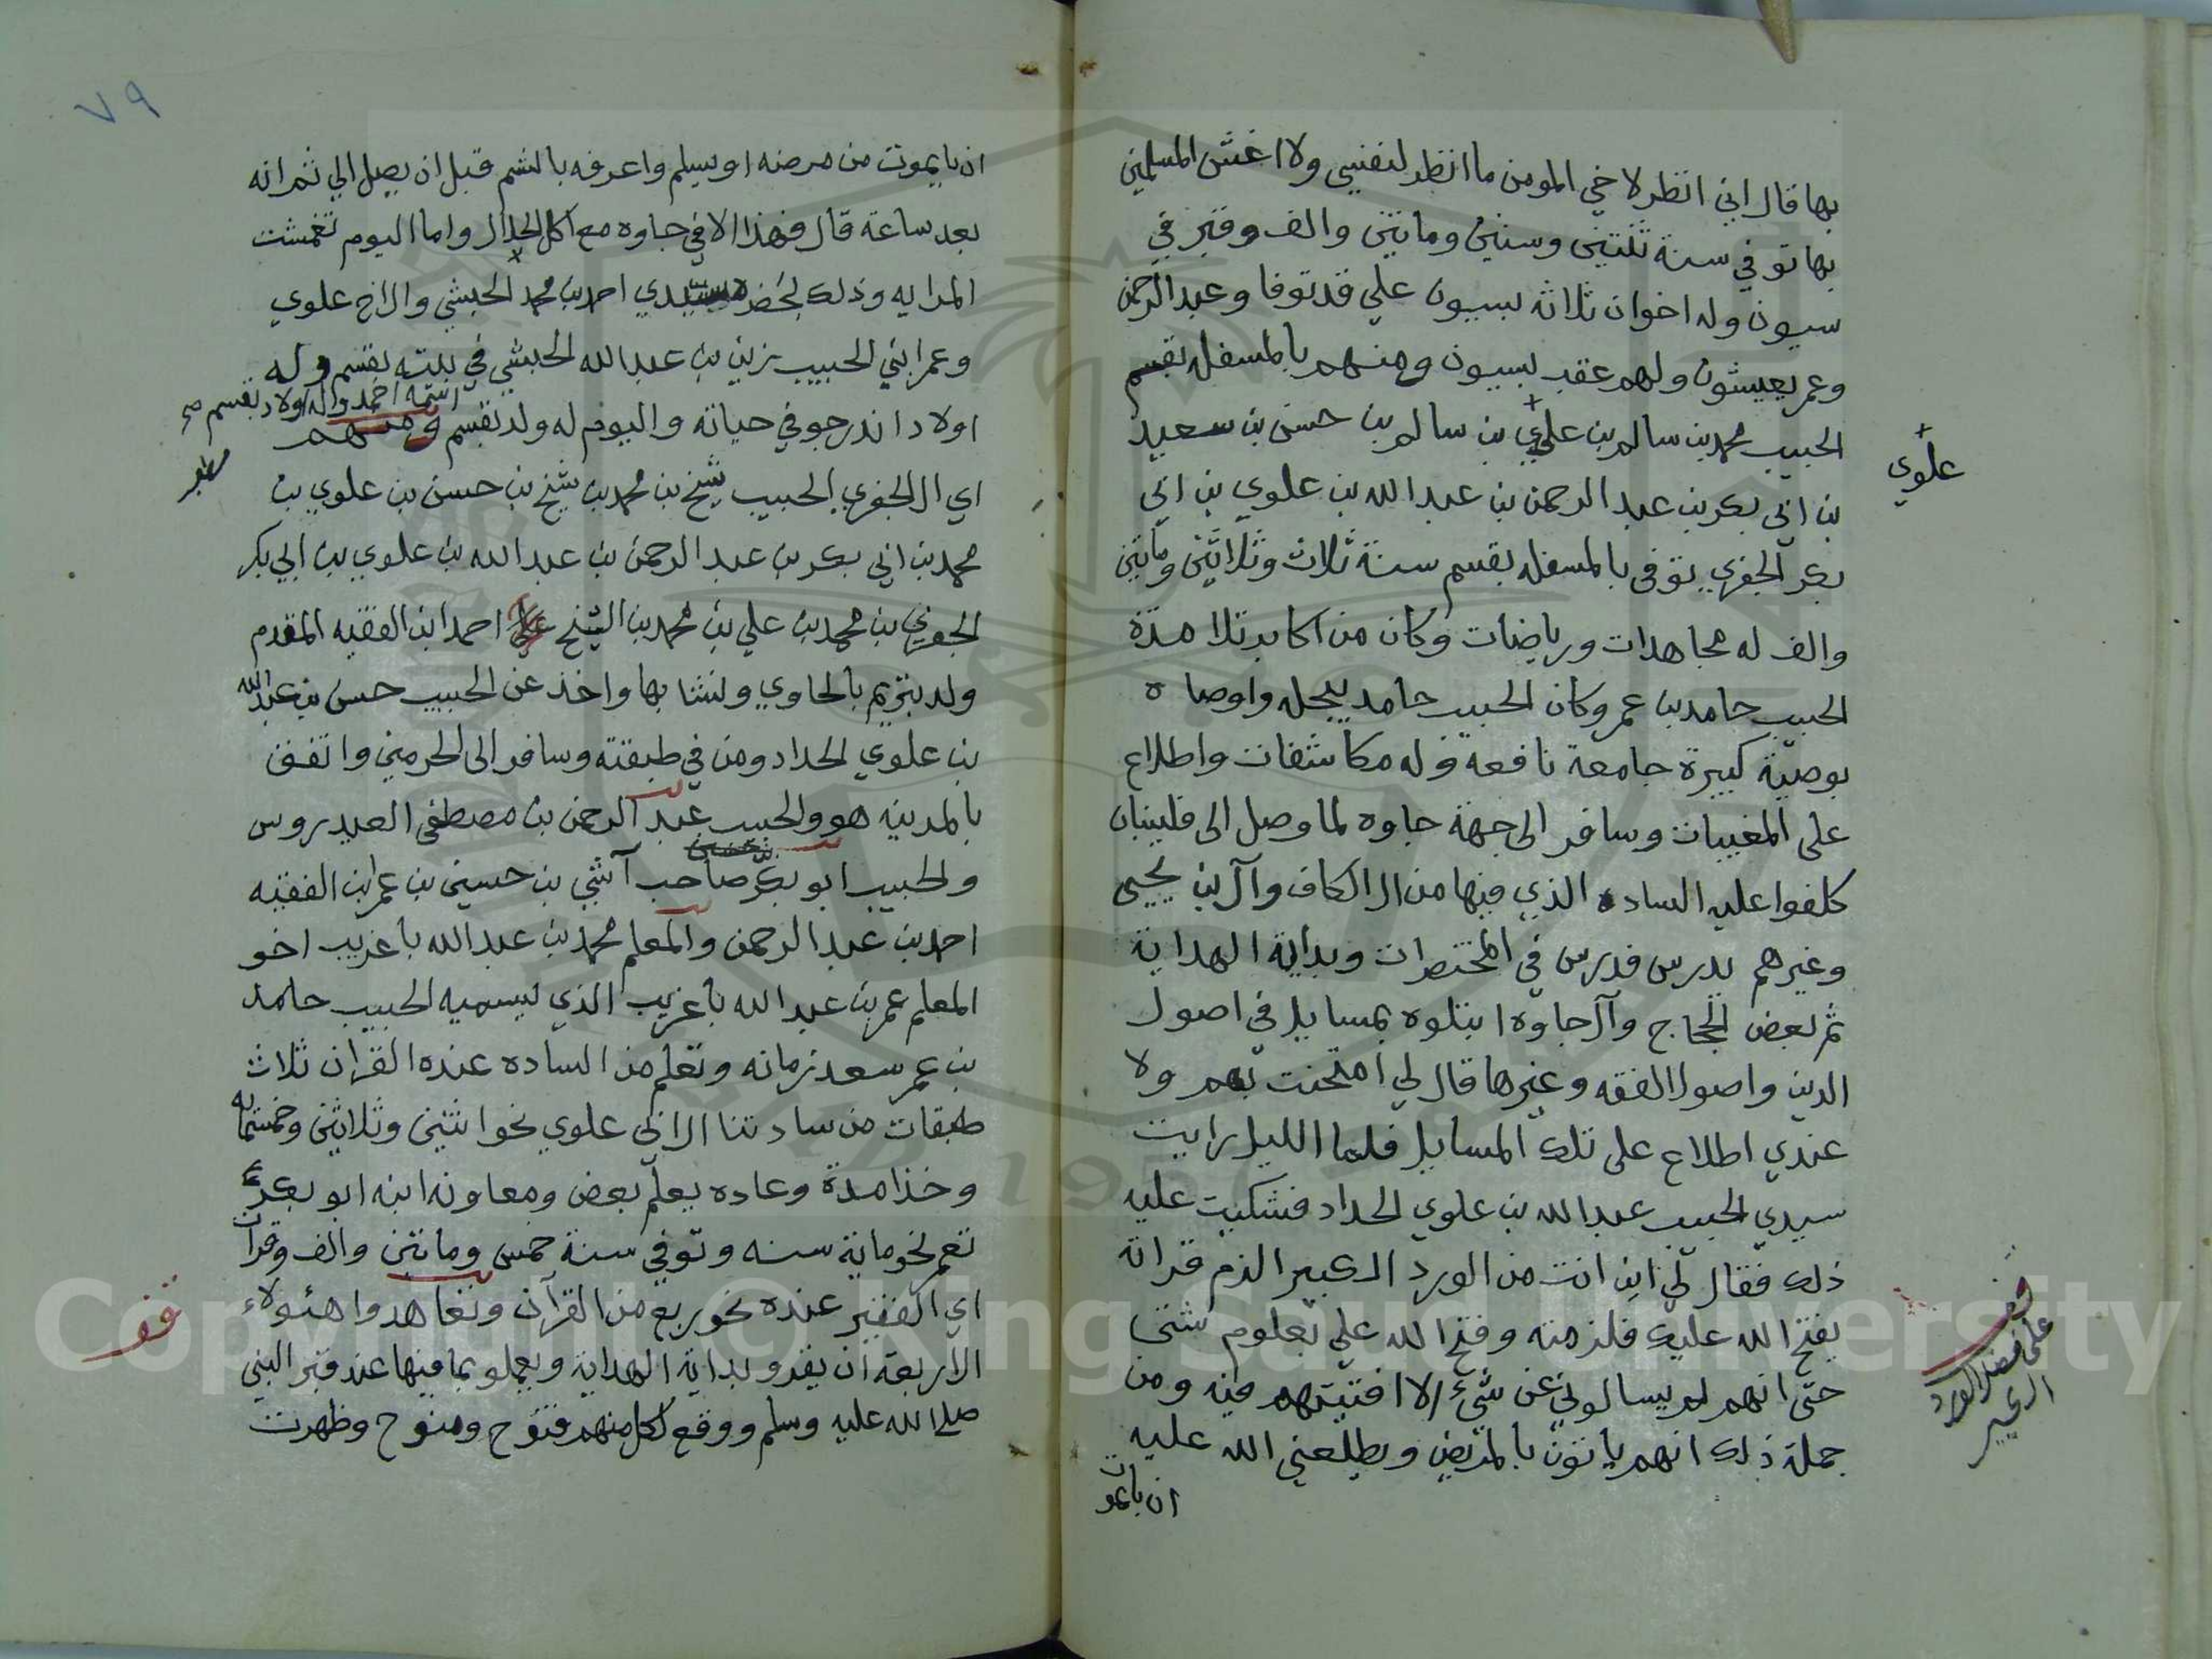 بها قال اني انظر لاخي المومن ما انظر لنفسي ولا اغش المسلمين
بها توفي سنة ثنتين وستين ومائتين والف وقبر في
سيون وله اخوان ثلاثه بسيون علي قد توفا وعبدالرحمن
وعمر يعيشون ولهم عقب بسيون ومنهم بالمسفله بقسم
الحبيب محمد بن سالم بن علوي بن سالم بن حسن بن سعيد
علوي
بن ابي بكر بن عبد الرحمن بن عبد الله بن علوي بن ابي
بكر الجفري توفى بالمسفله بقسم سنة ثلاث وثلاثين ومأتين
والف له مجاهدات ورياضات وكان من اكابر تلامذة
الحبيب حامد بن عمر وكان الحبيب حامد يبجله واوصاه
بوصيّة كبيرة جامعة نافعه وله مكاشفات واطلاع
على المغيبات وسافر الى جهة جاوه لما وصل الى فلينبان
كلفوا عليه الساده الذي فيها من ال الكاف وآل بن يحيى
وغيرهم يدرس فدرس في المختصرات وبداية الهداية
ثم بعض الحجاج وآل جاوه ابتلوه بمسايل في اصول
الدين واصول الفقه وغيرها قال لي امتحنت بهم ولا
عندي اطلاع على تلك المسايل فلما الليل رايت
سيدي الحبيب عبدالله بن علوي الحداد فشكيت عليه
ذلك فقال لي اين انت من الورد الكبير الزم قراته
يفتح الله عليك فلزمته وفتح الله علي بعلوم شتى
حتى انهم لم يسالوني عن شيء الا افتيتهم فيه ومن
جملة ذلك انهم ياتون بالمريض ويطلعني الله عليه
ان بايمو
قف
على فضل الورد
الكبير
٧٩
ان بايموت من مرضه او يسلم واعرفه بالشم قبل ان يصل الي ثم انه
بعد ساعة قال فهذا الا في جاوه مع اكل الحلال واما اليوم تغمشت
المرايه وذلك بحضرة سيدي احمد بن محمد الحبشي والاخ علوي
وعمر ابني الحبيب زين بن عبدالله الحبشي في بيته بقسم وله
اسمه احمد وله اولاد بقسم صح
اولاد اندرجو في حياته واليوم له ولد بقسم ومنهم
اي ال الجفري الحبيب شيخ بن محمد بن شيخ بن حسن بن علوي بن
محمد بن ابي بكر بن عبد الرحمن بن عبد الله بن علوي بن ابي بكر
الجفري بن محمد بن علي بن محمد بن الشيخ احمد ابن الفقيه المقدم
ولد بتريم بالحاوي ونشا بها واخذ عن الحبيب حسن بن عبدالله
بن علوي الحداد ومن في طبقته وسافر الى الحرمين واتفق
بالمدينه هو والحبيب عبد الرحمن بن مصطفى العيدروس
والحبيب ابو بكر صاحب آشي بن حسين بن عمر ابن الفقيه
احمد بن عبد الرحمن والمعلم محمد بن عبد الله باغريب اخو
المعلم عمر بن عبد الله باغريب الذي يسميه الحبيب حامد
بن عمر سعد زمانه وتعلم من الساده عنده القران ثلاث
طبقات من سادتنا ال ابي علوي نحو اثنين وثلاثين وخمسمايه
وخذا مدة وعاده يعلم بعض ومعاونه ابنه ابو بكر
تعمر نحو ماية سنه وتوفي سنة خمس ومائتين والف وقرات
اي الفقير عنده نحو ربع من القرآن وتعاهدوا هئولاء
قف
الاربعه ان يقرو بداية الهداية ويعملو بما فيها عند قبر النبي
صلى الله عليه وسلم ووقع لكل منهم فتوح ومنوح وظهرت
Copyright © King Saud University